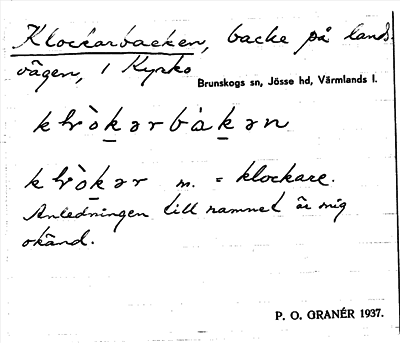 Klockarbacken, backe på lands-
vägen, i Kyrko
Brunskogs sn, Jösse hd, Värmlands l.
klòkərbàkən
klòkər m. = klockare.
Anledningen till namnet är mig
okänd.
P. O. GRANÉR 1937.